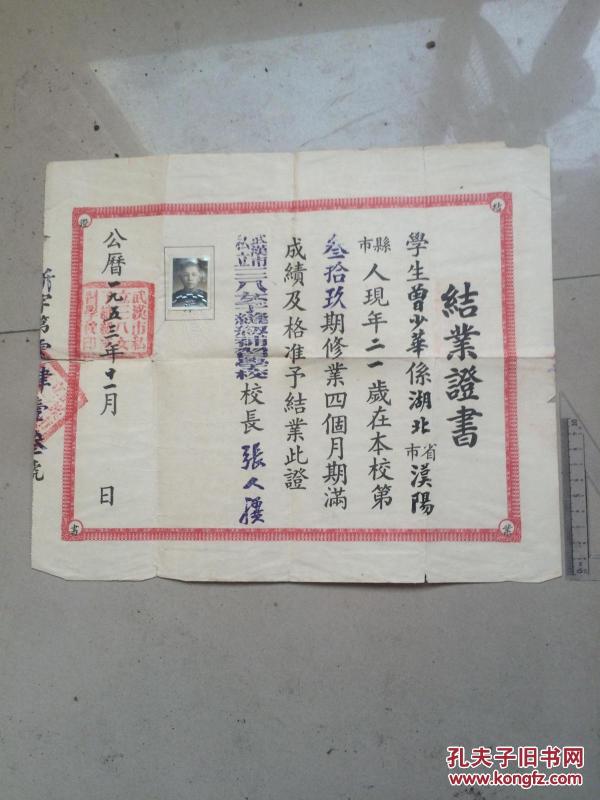 結業證書
學生曾少華係湖北省市漢陽
縣市人現年二一歲在本校第
叁拾玖期修業四個月期滿
成績及格准予結業此證
武漢市私立三八女子縫紉補習學校校長張人
武漢市私
立三八女
習學校印
公曆一九五三年十一月 日
新字第
號
結
業
證
書
孔夫子旧书网
www.kongfz.com